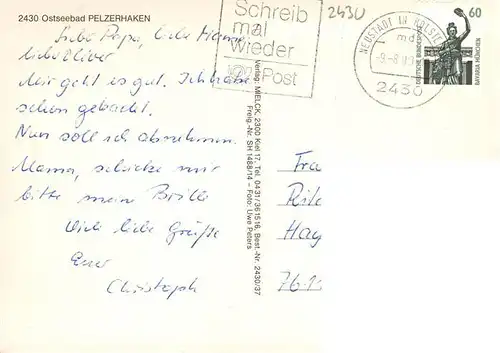 2430 Ostseebad PELZERHAKEN
Schreib
mal
wieder
Post
2430
NEUSTADT IN HOLST
md
-9.-8.
2430
60
DEUTSCHE BUNDESPOST
BAVARIA MÜNCHEN
Liebe Papa, liebe Mama
lieber Oliver
Mir geht es gut. Ich habe
schon gebadet.
Nun soll ich abnehmen.
Mama, schicke mir
bitte meine Brille
Viele liebe Grüße
Euer
Christoph
Verlag: MIELCK, 2300 Kiel 17, Tel. 0431/361516, Best.-Nr. 2430/37
Freig.-Nr. SH 1488/14 – Foto: Uwe Peters
Fra
Hay